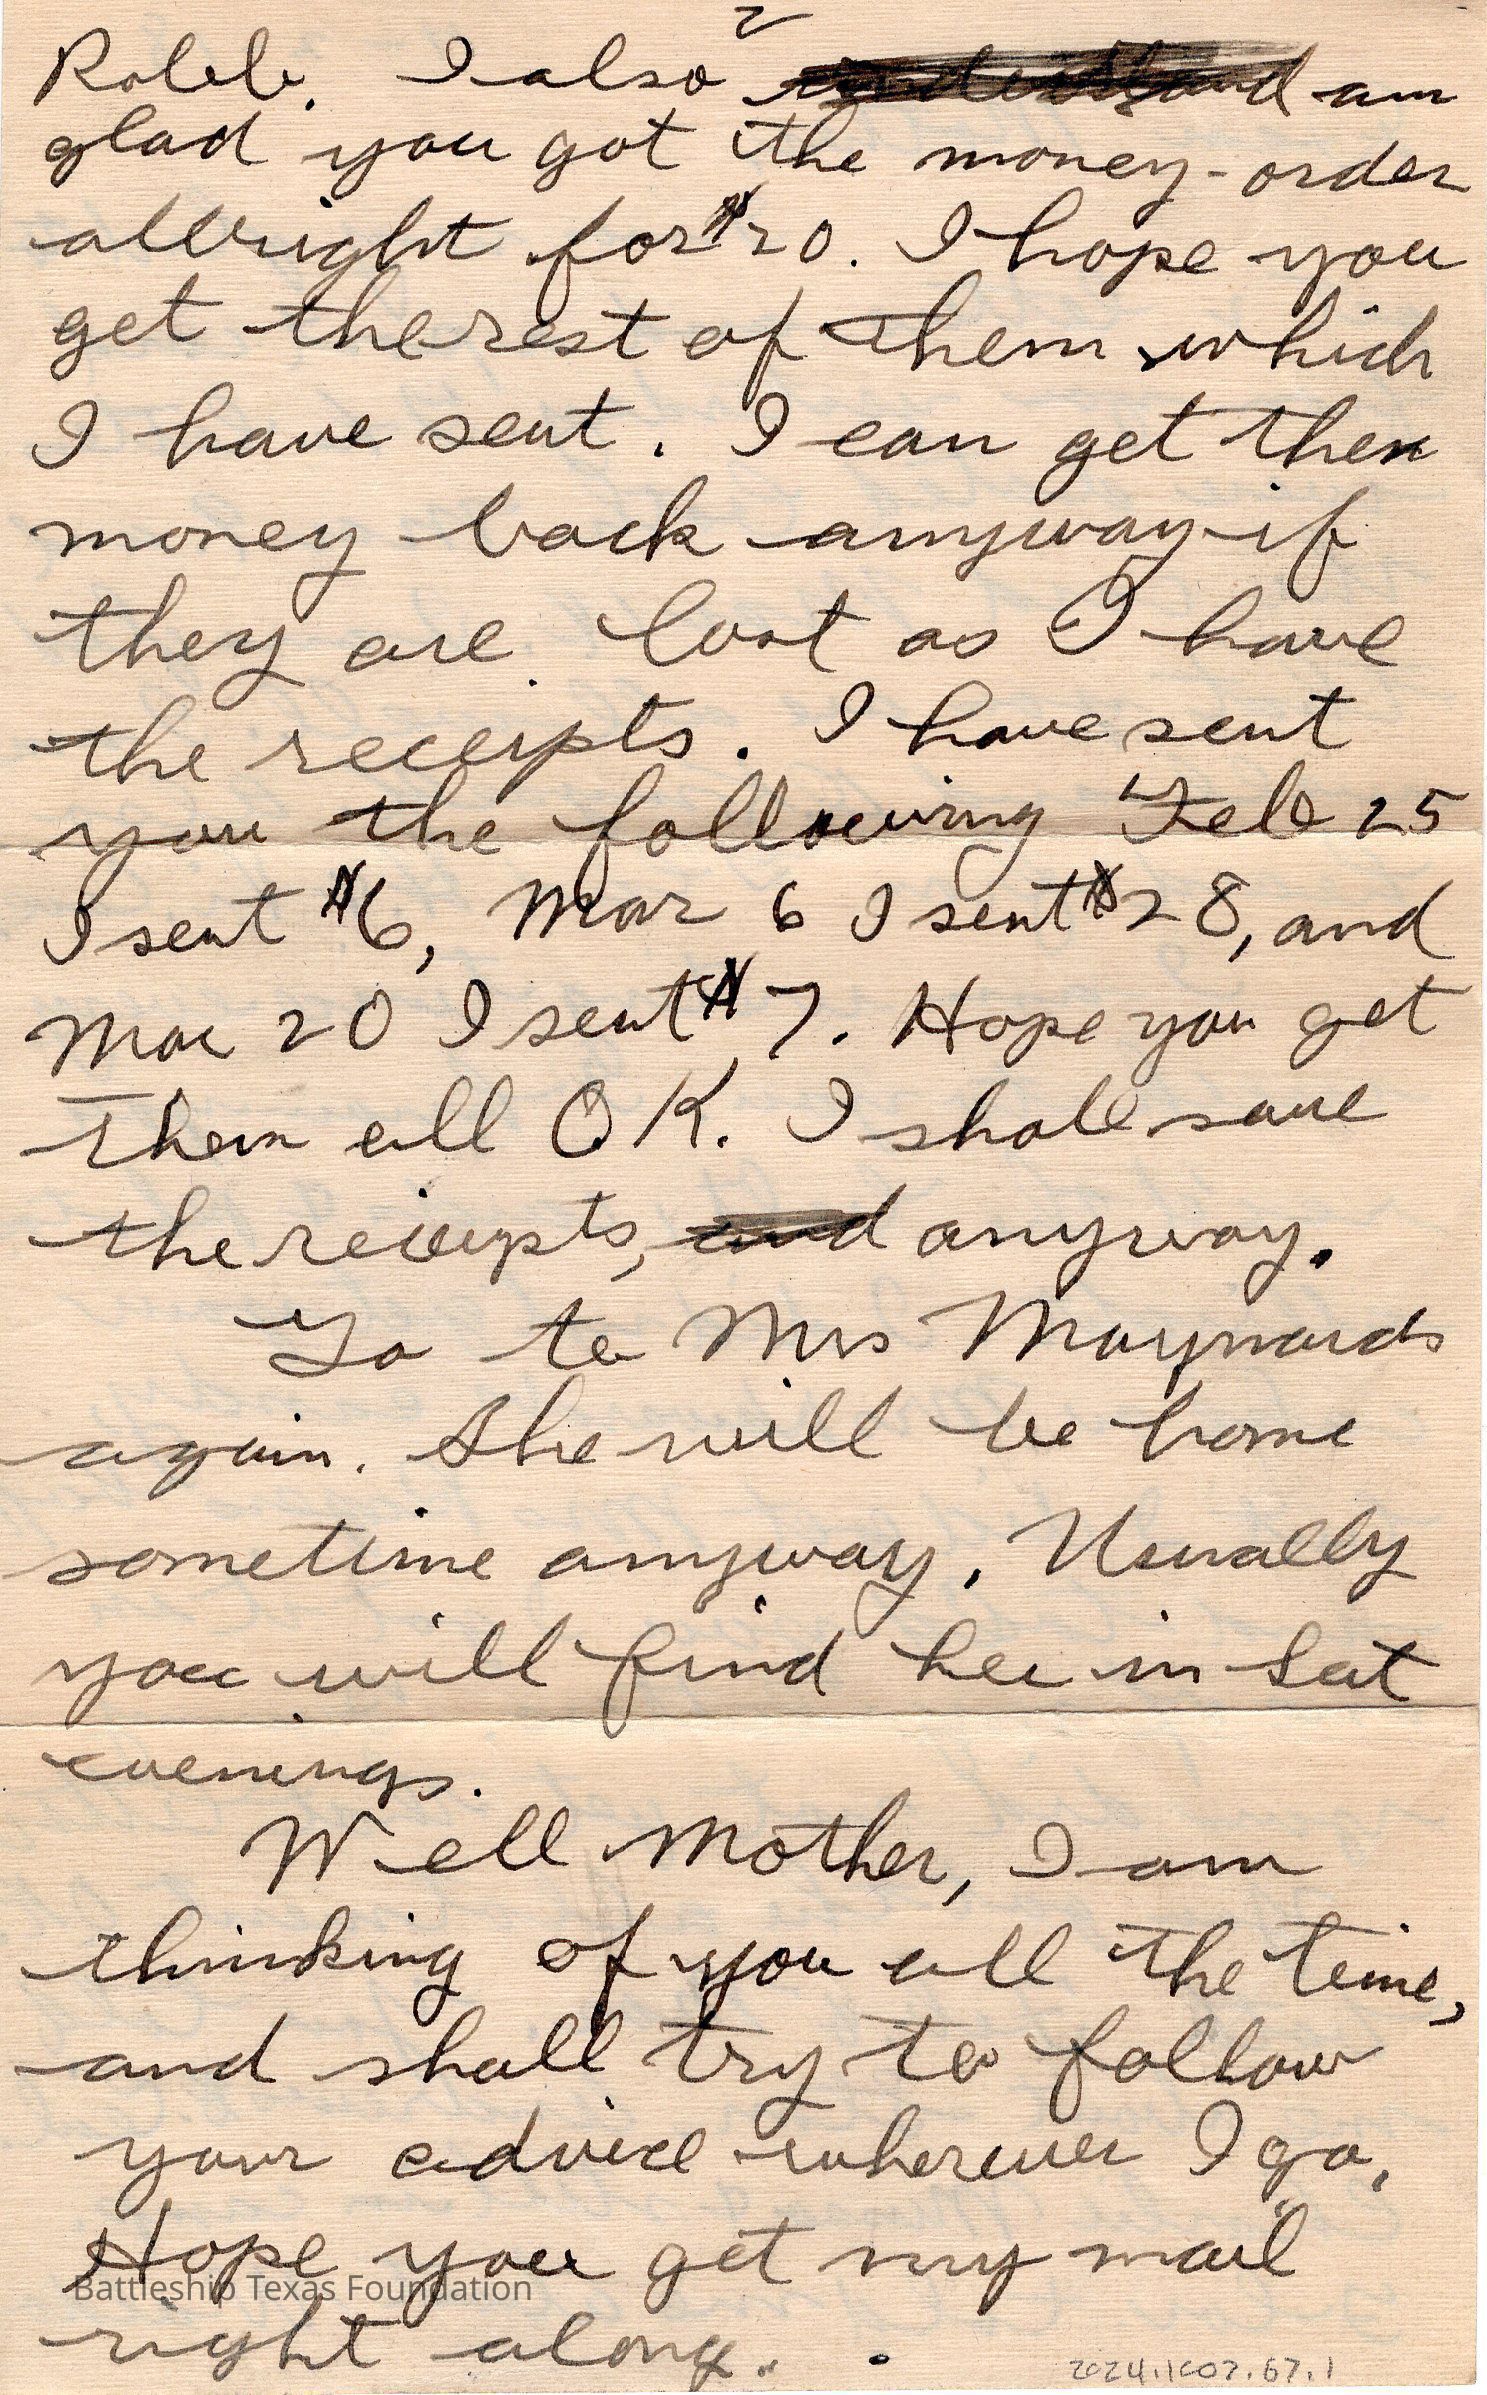 2
I also understand am
glad you got the money-order
allright for $20. I hope you
get the rest of them which
I have sent. I can get the
money back anyway if
they are lost as I have
the receipts. I have sent
you the following Feb 25
I sent $6, Mar 6 I sent $28, and
Mar 20 I sent $7. Hope you get
them all O.K. I shall save
the reciepts, and anyway.
Go to Mrs Maynards
again. She will be home
sometime anyway. Usually
you will find her in Sat
evenings.
Well Mother, I am
thinking of you all the time,
and shall try to follow
your advice wherever I go.
Hope you get my mail
Battleship Texas Foundation
right along.
2024.1007.67.1